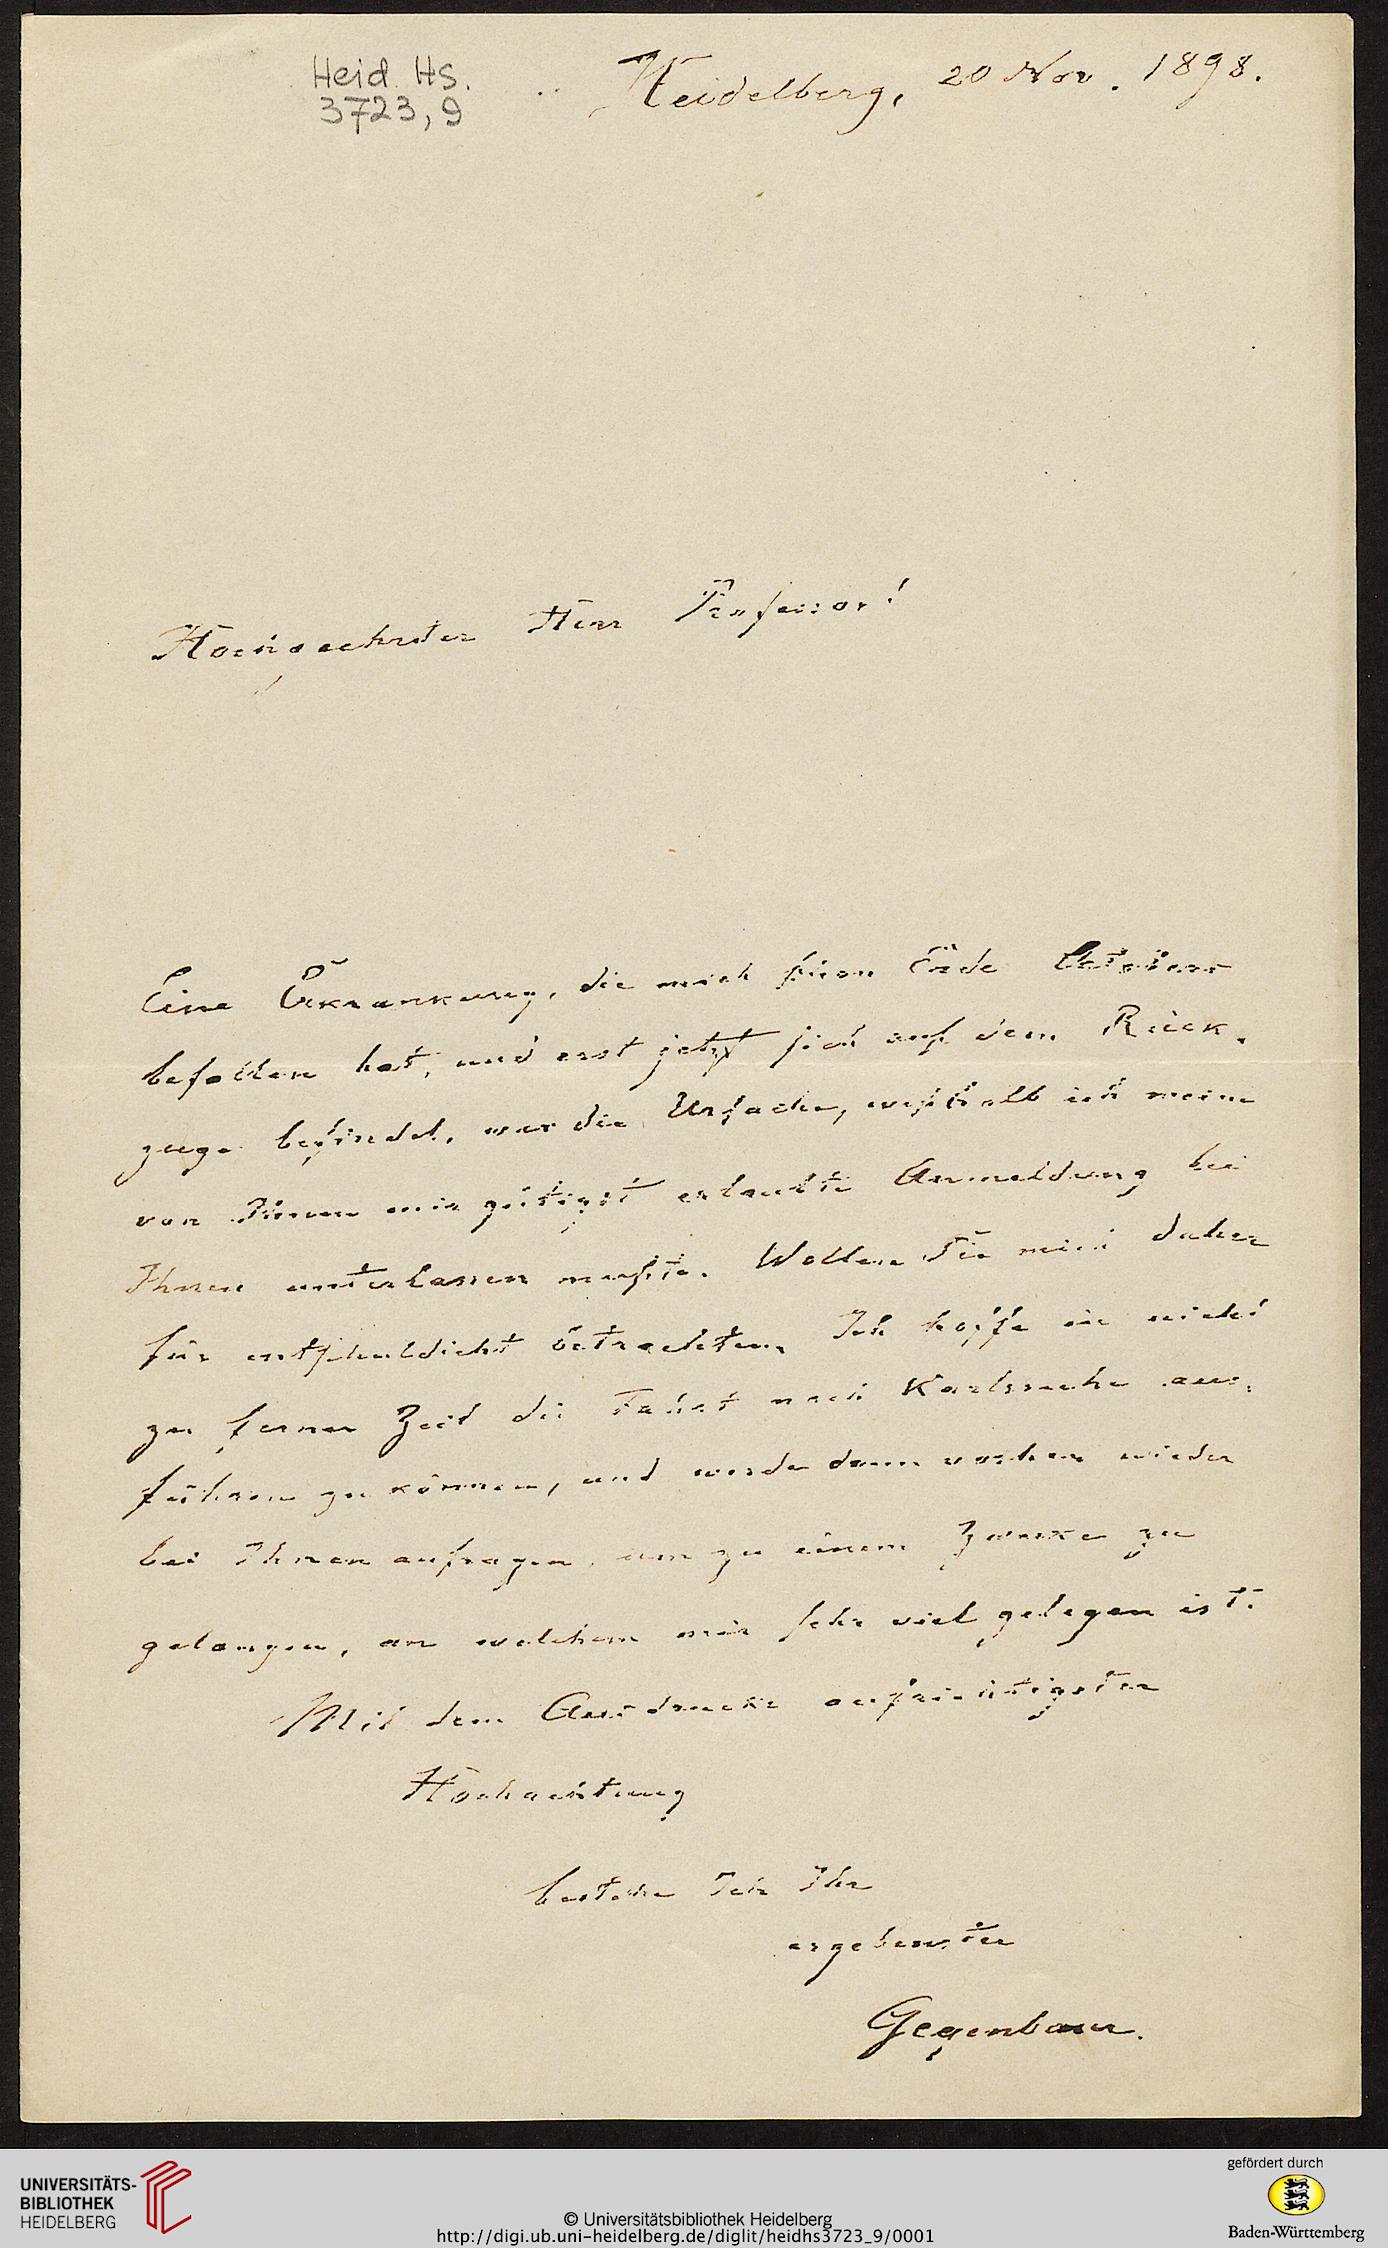 Heid. Hs.
3723, 9
Heidelberg, 20 Nov. 1898.
Hochgeehrter Herr Professor!
Eine Erkrankung, die mich Ende Octobers
befallen hat, und erst jetzt sich auf dem Rück-
zuge befindet, war die Ursache, weßhalb ich meine
von Ihnen mir gütigst erlaubte Anmeldung bei
Ihnen unterlassen mußte. Wollen Sie mich daher
für entschuldicht betrachten. Ich hoffe in nicht
zu ferner Zeit die Fahrt nach Karlsruhe aus-
führen zu können, und werde dann vorher wieder
bei Ihnen anfragen, um zu einem Zwecke zu
gelangen, an welchem mir sehr viel gelegen ist.
Mit dem Ausdrucke aufrichtigster
Hochachtung
bestehe Ich Ihr
ergebenster
Gegenbaur.
UNIVERSITÄTS-
BIBLIOTHEK
HEIDELBERG
© Universitätsbibliothek Heidelberg
http://digi.ub.uni-heidelberg.de/diglit/heidhs3723_9/0001
gefördert durch
Baden-Württemberg